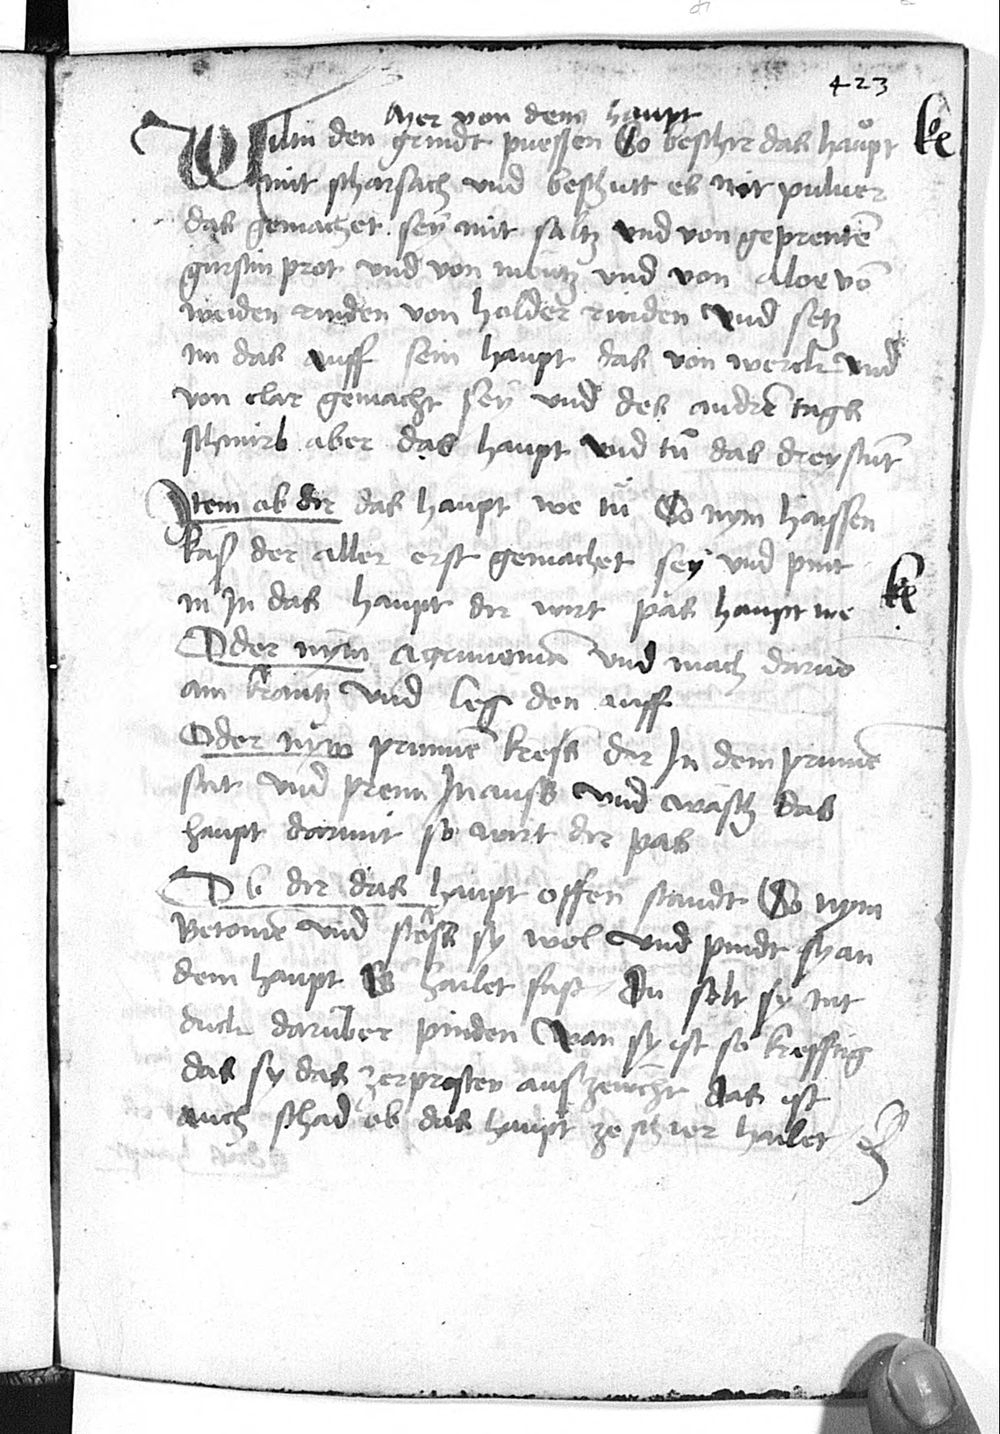 423
Mer von dem haupt
Wiltu den grindt puessen So beschir das haupt
mit scharsach und beschutt es mit puluer
das gemachet sey mit saltz vnd von geprentē
girstin prot vnd von muntz vnd von Aloe vō
weiden rinden von holder rinden vnd setz
im das auff sein haupt das von werck vnd
von clar gemacht sey vnd des andrē tags
schmirb aber das haupt vnd tů das drey stūt
Item ob dir das haupt we tů So nym haissen
kaß der aller erst gemachet sey vnd pint
in In das haupt dir wirt pas haupt we
Oder nym Agrimoniā vnd mach darus
ain krantz vnd leg den auff
Oder nym prunnē kress der In dem prunnē
stat vnd prenn In auss vnd wasch das
haupt darmit so wirt dir pas
Ob dir das haupt offen standt So nym
Betonie vnd stoss sy wol vnd pindt sy an
dem haupt Es hailet fast Du solt sy mit
duch darüber pinden Wan sy ist so krefftig
das sy das zerprosten auszewcht das ist
auch schad ob das haupt ze schier hailet